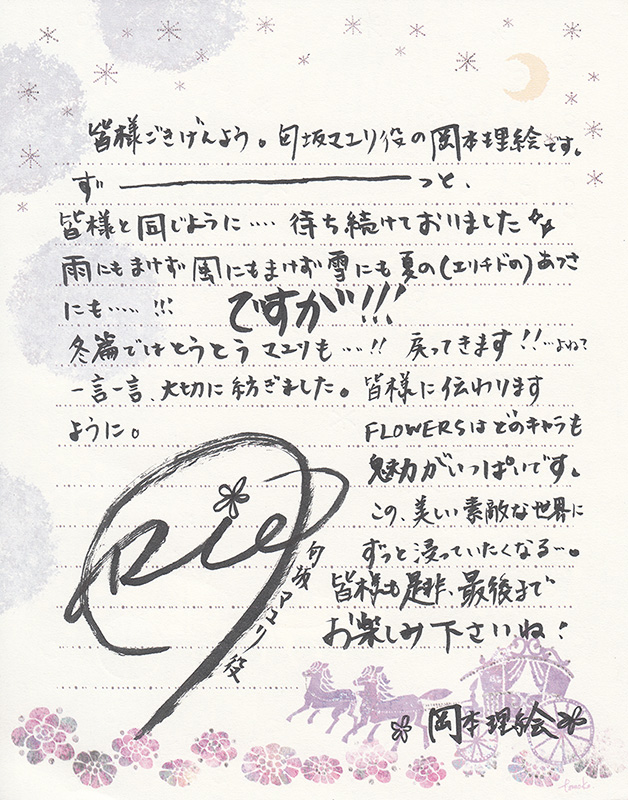 皆様ごきげんよう。匂坂マユリ役の岡本理絵です。
ず────────っと、
皆様と同じように…. 待ち続けておりました
雨にもまけず風にもまけず雪にも夏の(エリチドの)あつさ
にも….. !!! ですが!!!
冬篇ではとうとうマユリも…!! 戻ってきます!!…よね?
一言一言、大切に紡ぎました。皆様に伝わります
ように。
FLOWERSはどのキャラも
魅力がいっぱいです。
この、美しい素敵な世界に
ずっと浸っていたくなる…。
皆様も是非、最後まで
お楽しみ下さいね!
Rie
匂坂マユリ役
岡本理絵